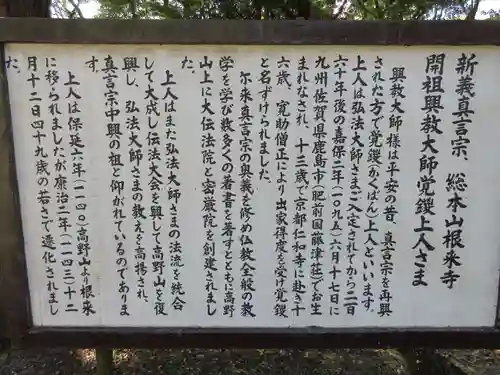 新義真言宗、総本山根来寺
開祖興教大師覚鑁上人さま
興教大師様は平安の昔、真言宗を再興
された方で覚鑁(かくばん)上人といいます。
上人は弘法大師さまご入定されてから二百
六十年後の嘉保二年(一〇九五)六月十七日に
九州佐賀県鹿島市(肥前国藤津荘)でお生
まれなされ、十三歳で京都仁和寺に赴き十
六歳、寛助僧正により出家得度を受け覚鑁
と名ずけられました。
尓来真言宗の奥義を修め仏教全般の教
学を学び数多くの著書を著すとともに高野
山上に大伝法院と密厳院を創建されまし
た。
上人はまた弘法大師さまの法流を統合
して大成し伝法大会を興して高野山を復
興し、弘法大師さまの教えを高揚され、
真言宗中興の祖と仰がれているのでありま
す。
上人は保延六年(一一四〇)高野山より根来
に移られましたが康治二年(一一四三)十二
月十二日四十九歳の若さで遷化されまし
た。